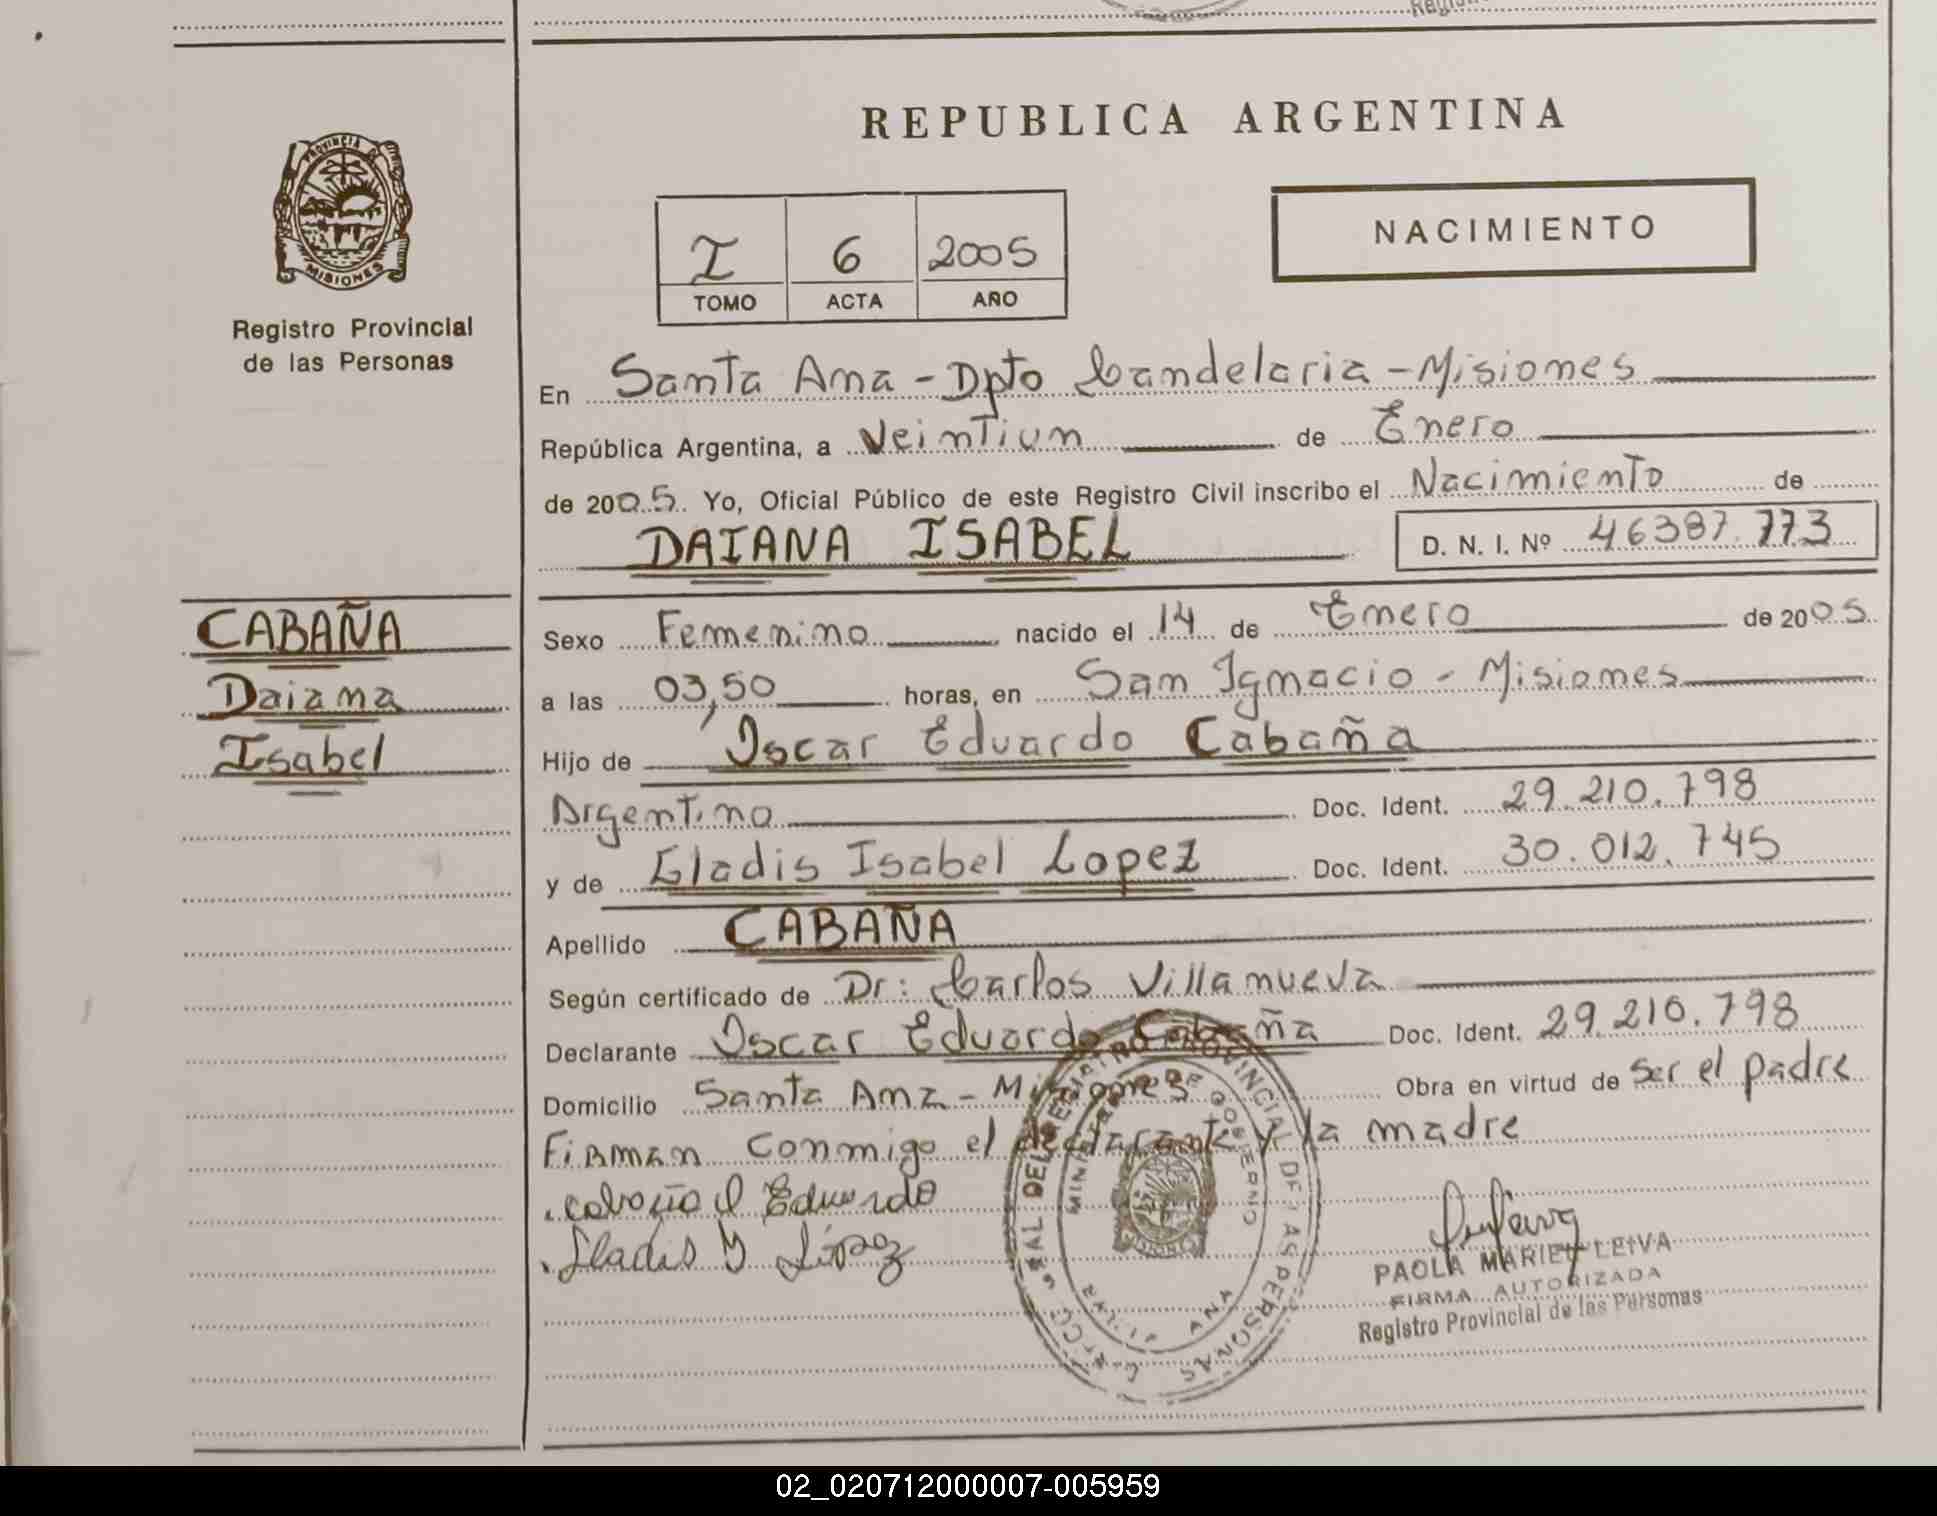 REPUBLICA ARGENTINA
PROVINCIA DE
MISIONES
Registro Provincial
de las Personas
I 6 2005
TOMO ACTA AÑO
NACIMIENTO
En Santa Ana - Dpto Candelaria - Misiones
República Argentina, a Veintiun de Enero
de 2005. Yo, Oficial Público de este Registro Civil inscribo el Nacimiento de
DAIANA ISABEL
D. N. I. Nº 46387.773
CABAÑA
Daiana
Isabel
Sexo Femenino nacido el 14 de Enero de 2005
a las 03,50 horas, en San Ignacio - Misiones
Hijo de Oscar Eduardo Cabaña
Argentino Doc. Ident. 29.210.798
y de Gladis Isabel Lopez Doc. Ident. 30.012.745
Apellido CABAÑA
Según certificado de Dr: Carlos Villanueva
Declarante Oscar Eduardo Cabaña Doc. Ident. 29.210.798
Domicilio Santa Ana - Misiones Obra en virtud de ser el padre
Firman conmigo el declarante y la madre
Cabaña O Eduardo
Gladis I López
PROVINCIAL DE LAS PERSONAS
MINISTERIO DE GOBIERNO
ANA
PAOLA MARIEL LEIVA
FIRMA AUTORIZADA
Registro Provincial de las Personas
02_020712000007-005959